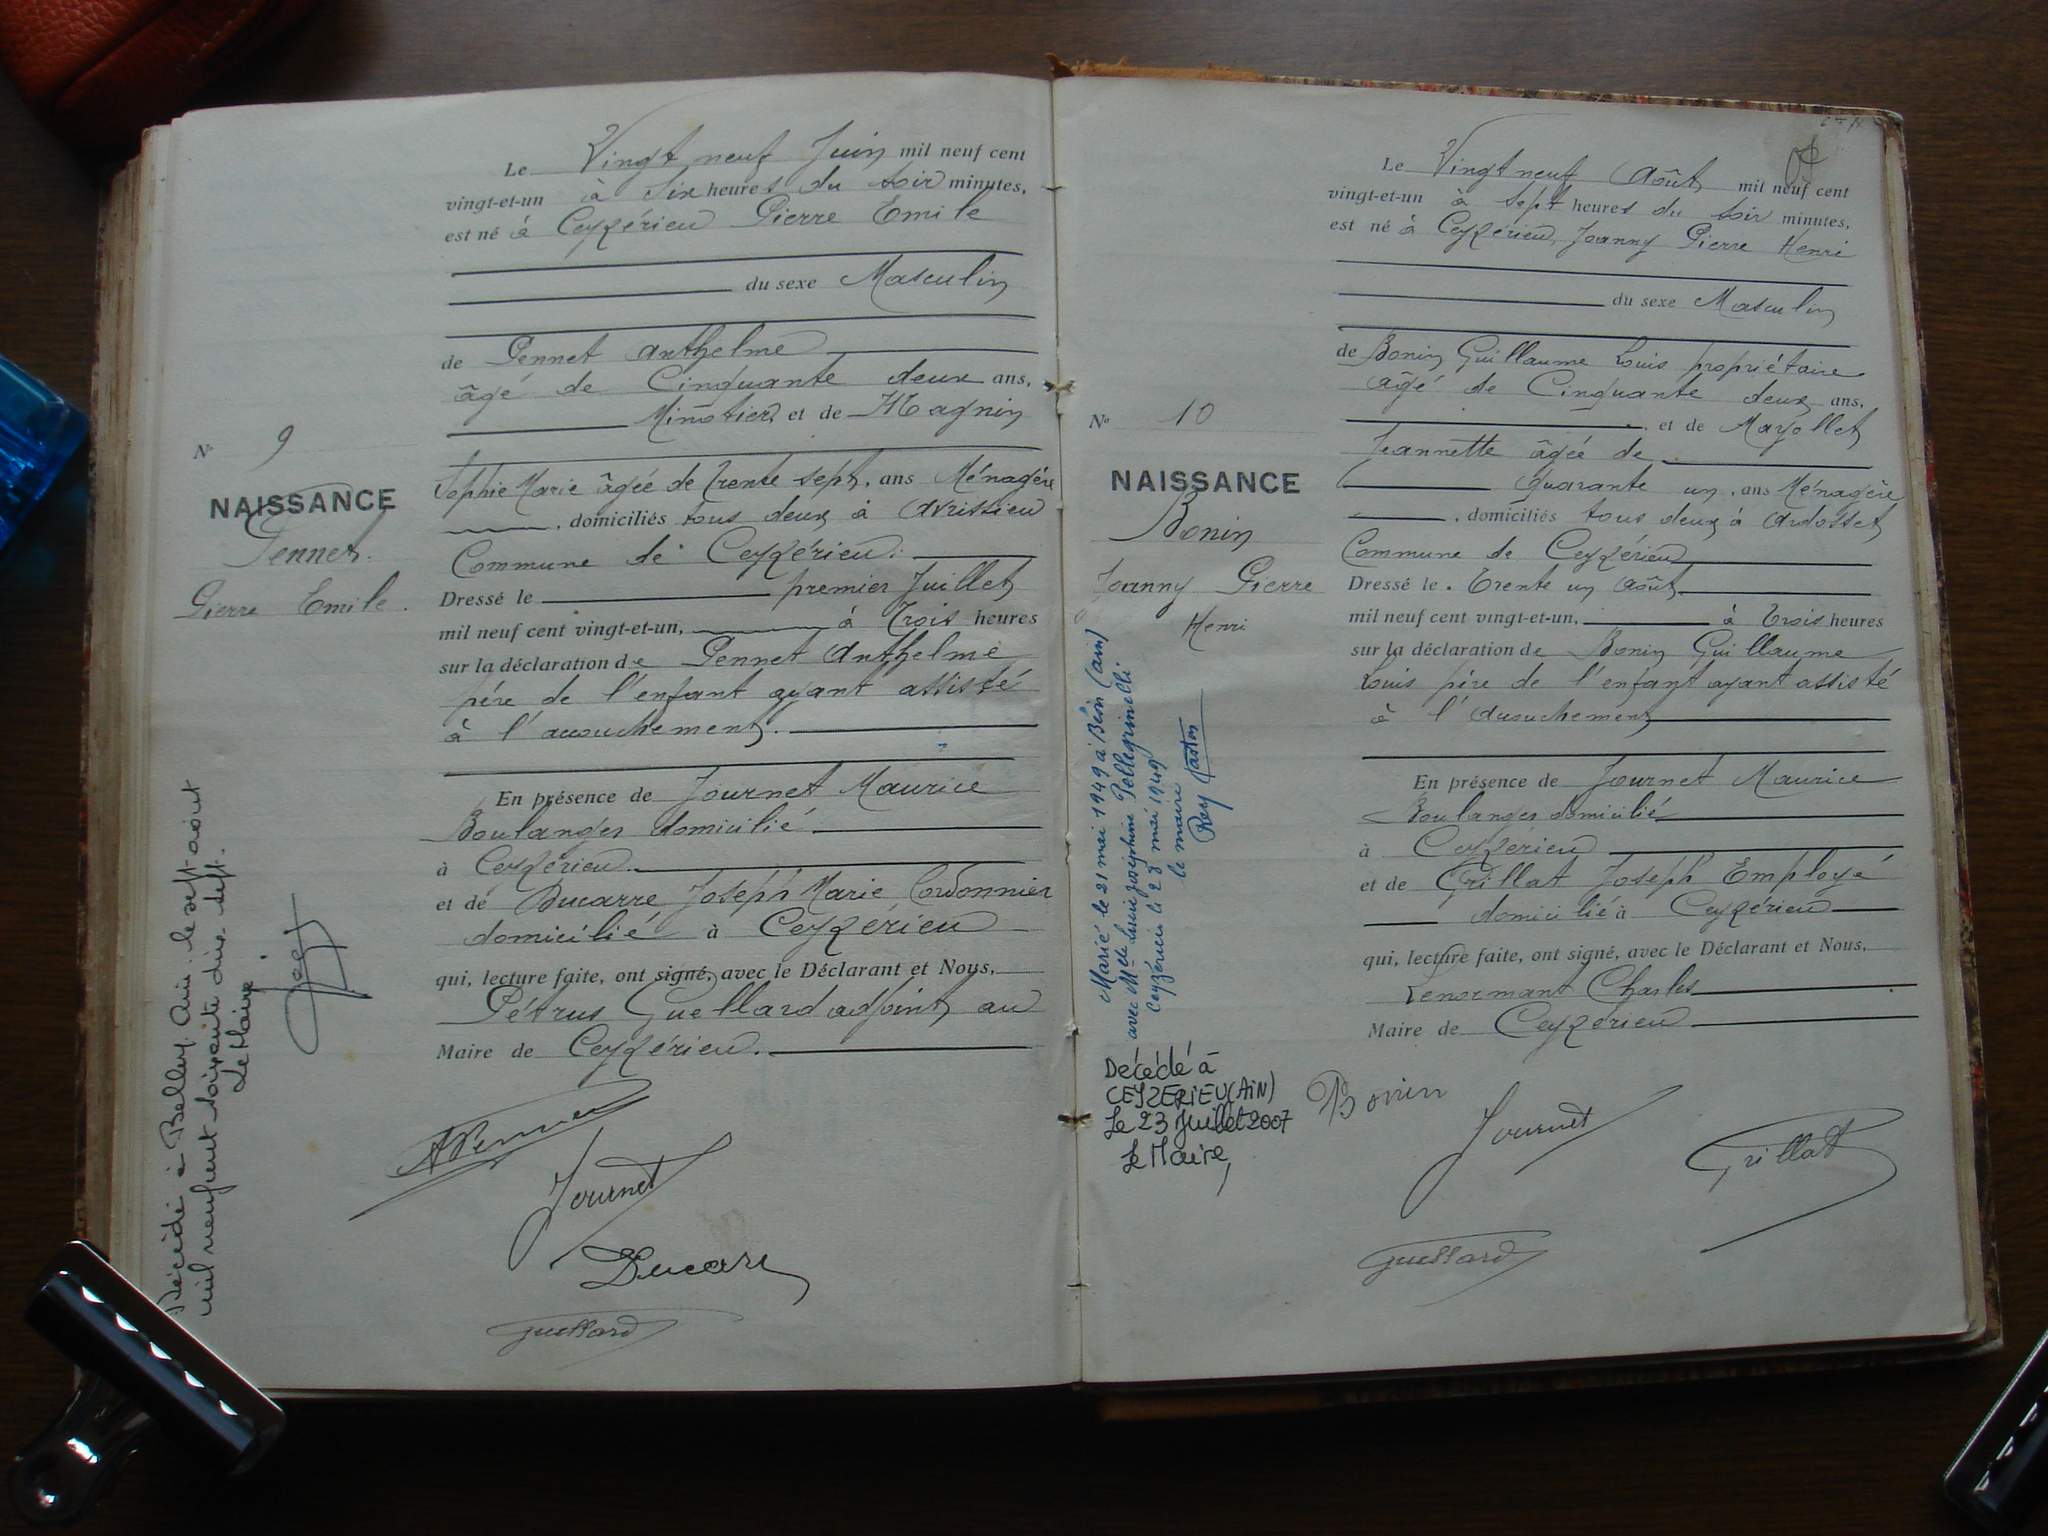 Le Vingt neuf Juin mil neuf cent
vingt-et-un à Six heures du soir minutes,
est né à Ceyzérieu Pierre Emile
du sexe Masculin
de Pennet Anthelme
âgé de Cinquante deux ans,
Minotier et de Magnin
Sophie Marie âgée de trente sept, ans Ménagère
, domiciliés tous deux à Avrissieu
Commune de Ceyzérieu.
Dressé le premier Juillet
mil neuf cent vingt-et-un, à Trois heures
sur la déclaration de Pennet Anthelme
père de l'enfant ayant assisté
à l'accouchement.
En présence de Journet Maurice
Boulanger domicilié
à Ceyzérieu
et de Ducarre Joseph Marie Cordonnier
domicilié à Ceyzérieu
qui, lecture faite, ont signé, avec le Déclarant et Nous,
Pétrus Guellard adjoint au
Maire de Ceyzérieu.
N° 9
NAISSANCE
Pennet.
Pierre Emile.
Décédé à Belley. Ain. le sept août
mil neuf cent soixante dix-sept.
Le Maire
APennet
Journet
Ducarre
Guellard
Le Vingt neuf Août mil neuf cent
vingt-et-un à Sept heures du soir minutes,
est né à Ceyzérieu, Joanny Pierre Henri
du sexe Masculin
de Bonin Guillaume Louis propriétaire
âgé de Cinquante deux ans,
, et de Mayollet
Jeannette âgée de
Quarante un, ans Ménagère
, domiciliés tous deux à Ardosset
Commune de Ceyzérieu
Dressé le Trente un Août
mil neuf cent vingt-et-un, à Trois heures
sur la déclaration de Bonin Guillaume
Louis père de l'enfant ayant assisté
à l'accouchement
En présence de Journet Maurice
Boulanger domicilié
à Ceyzérieu
et de Grillat Joseph Employé
domicilié à Ceyzérieu
qui, lecture faite, ont signé, avec le Déclarant et Nous,
Lenormant Charles
Maire de Ceyzérieu
N° 10
NAISSANCE
Bonin
Joanny Pierre
Henri
Marié le 21 mai 1949 à Béon (ain)
avec Melle Lucie Joséphine Pellegrinelli
Ceyzérieu le 23 mai 1949
le maire
Décédé à
CEYZERIEU (AIN)
Le 23 Juillet 2007
Le Maire,
Bonin
Journet
Grillat
Guellard